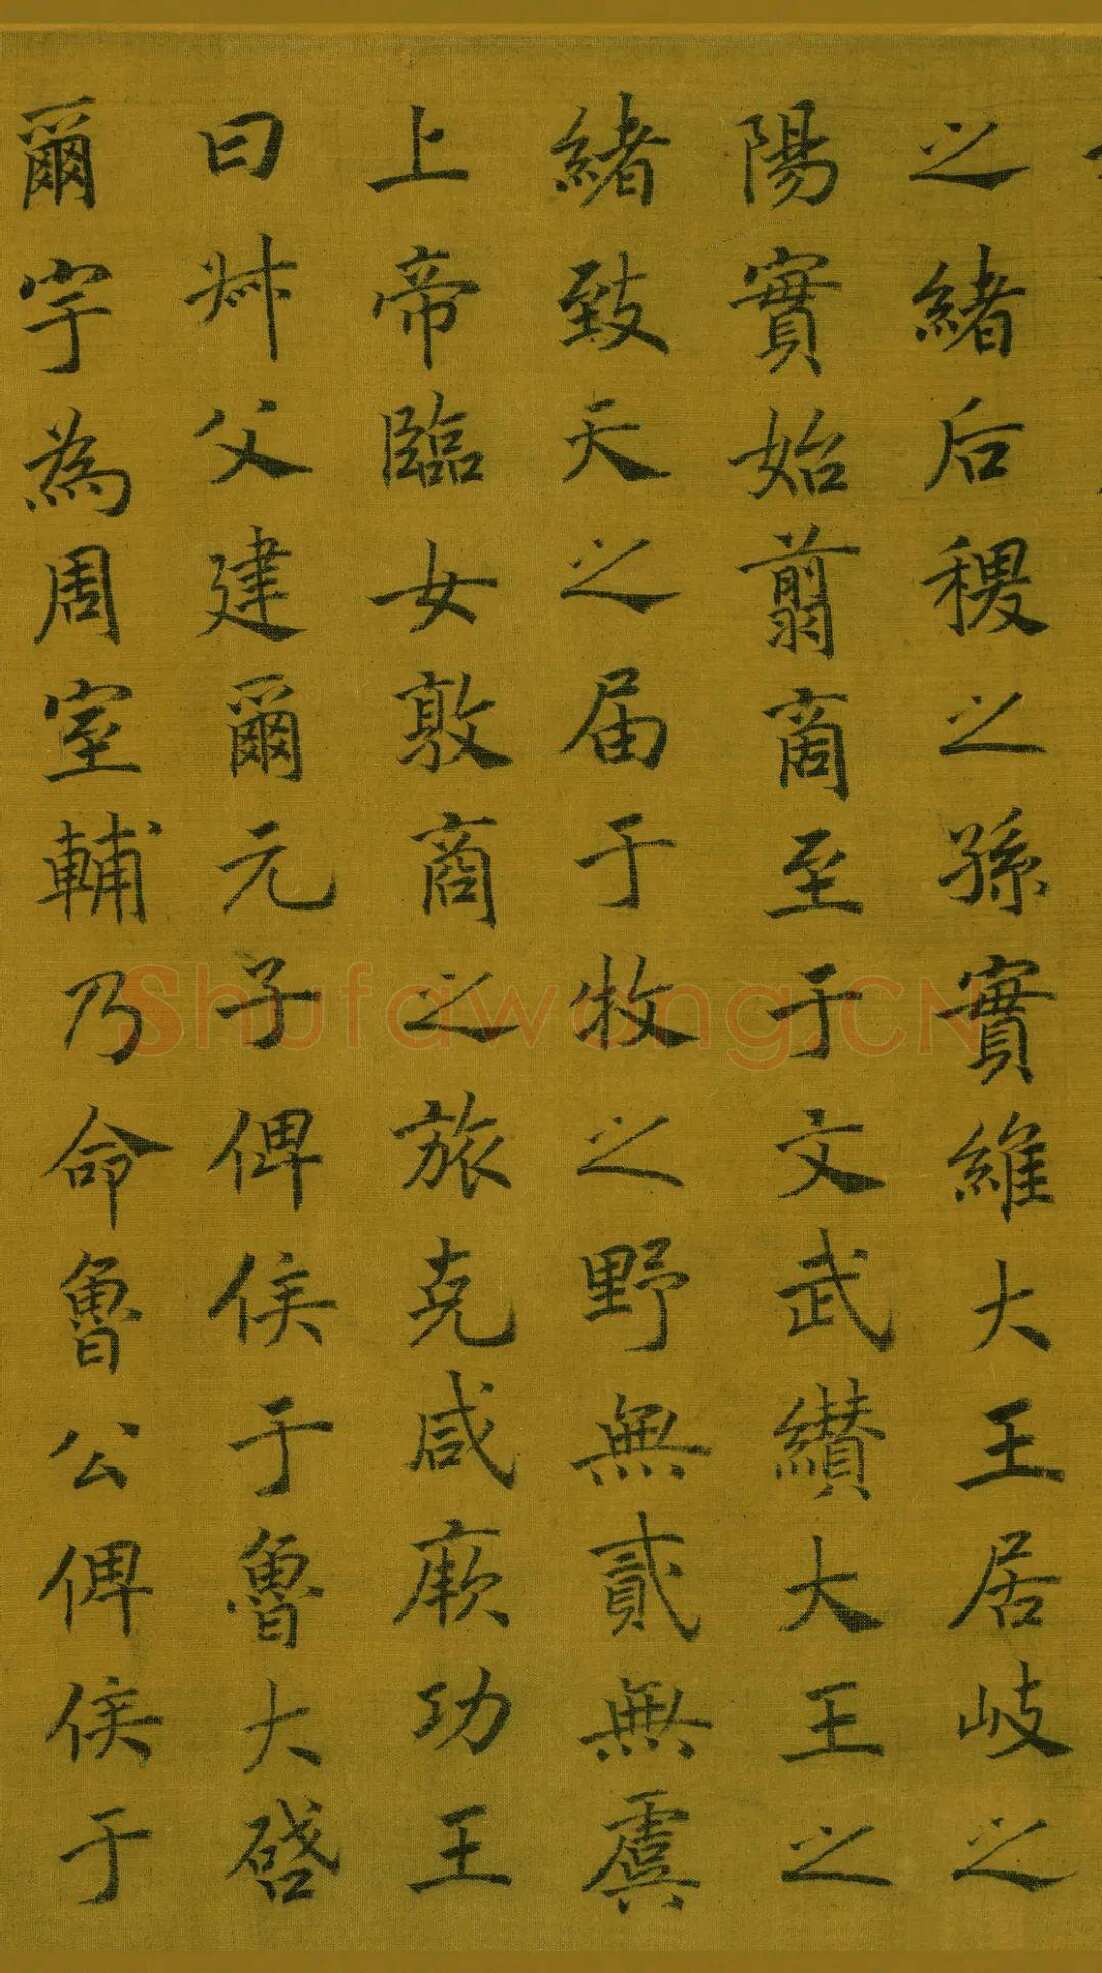 之緒后稷之孫實維大王居岐之
陽實始翦商至于文武纘大王之
緒致天之届于牧之野無貳無虞
上帝臨女敦商之旅克咸厥功王
曰叔父建爾元子俾侯于魯大啓
爾宇為周室輔乃命魯公俾侯于
Shufawang.CN